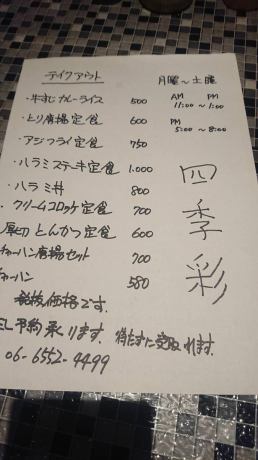 テイクアウト
月曜〜土曜
・牛すじカレーライス 500
AM PM
11:00〜1:00
・とり唐揚定食 600
PM
5:00〜8:00
・アジフライ定食 750
・ハラミステーキ定食 1.000
・ハラミ丼 800
・クリームコロッケ定食 700
厚切とんかつ定食 600
チャーハン唐揚セット 700
チャーハン 580
四季彩
税抜価格です.
EL予約承ります. 待たずに受取れます.
06-6552-9499